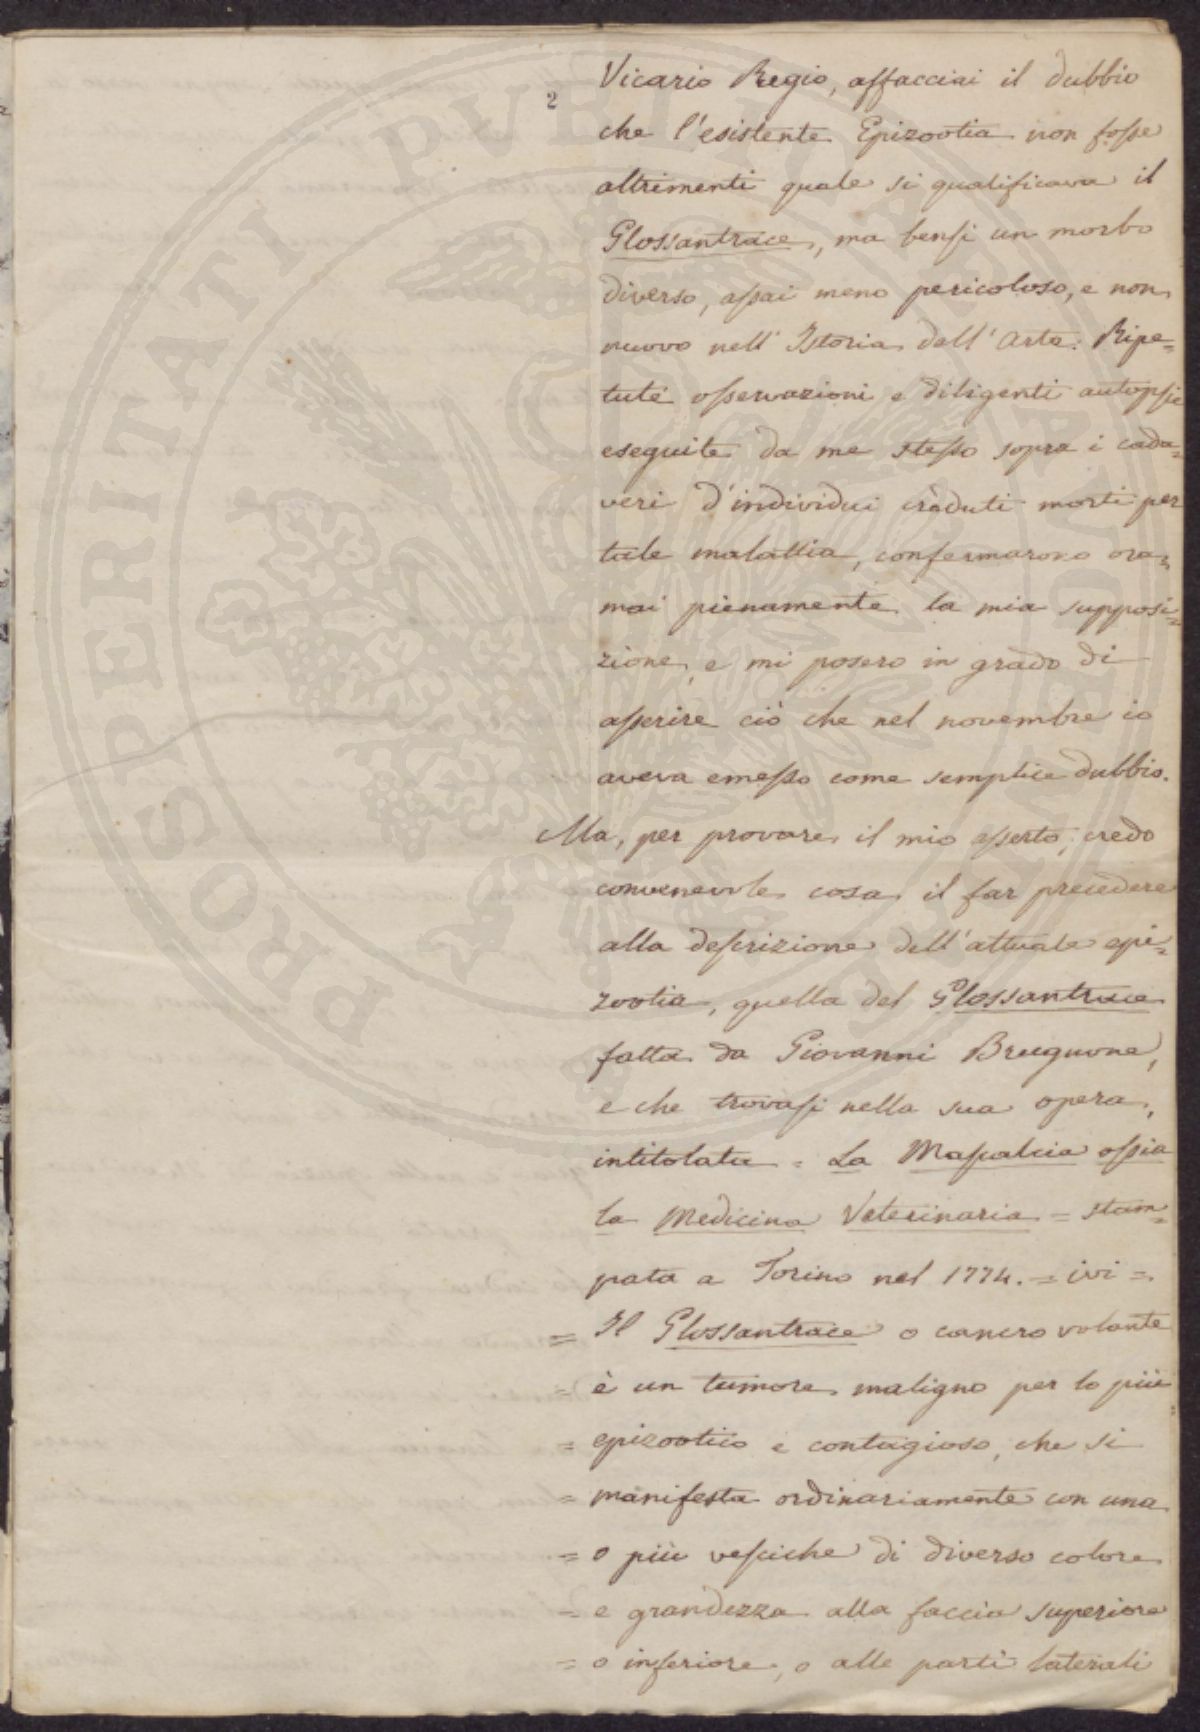 2
Vicario Regio, affacciai il dubbio
che l'esistente Epizootia non fosse
altrimenti quale si qualificava il
Glossantrace, ma bensi un morbo
diverso, assai meno pericoloso, e non
nuovo nell' Istoria dell'Arte. Ripe=
tute osservazioni e diligenti autopsie
eseguite da me stesso sopra i cada=
veri d'individui creduti morti per
tale malattia, confermarono ora=
mai pienamente la mia supposi=
zione, e mi posero in grado di
asserire ciò che nel novembre io
aveva emesso come semplice dubbio.
Ma, per provare il mio asserto, credo
convenevole cosa il far precedere
alla descrizione dell'attuale epi=
zootia, quella del Glossantrace
fatta da Giovanni Brugnone,
e che trovasi nella sua opera,
intitolata = La Mascalcia ossia
la Medicina Veterinaria = stam=
pata a Torino nel 1774. = ivi =
= Il Glossantrace o cancro volante
= è un tumore maligno per lo più
= epizootico e contagioso, che si
= manifesta ordinariamente con una
= o più vesciche di diverso colore
= e grandezza alla faccia superiore
= o inferiore, o alle parti laterali
PROSPERITATI PUBLICAE AUGENDAE